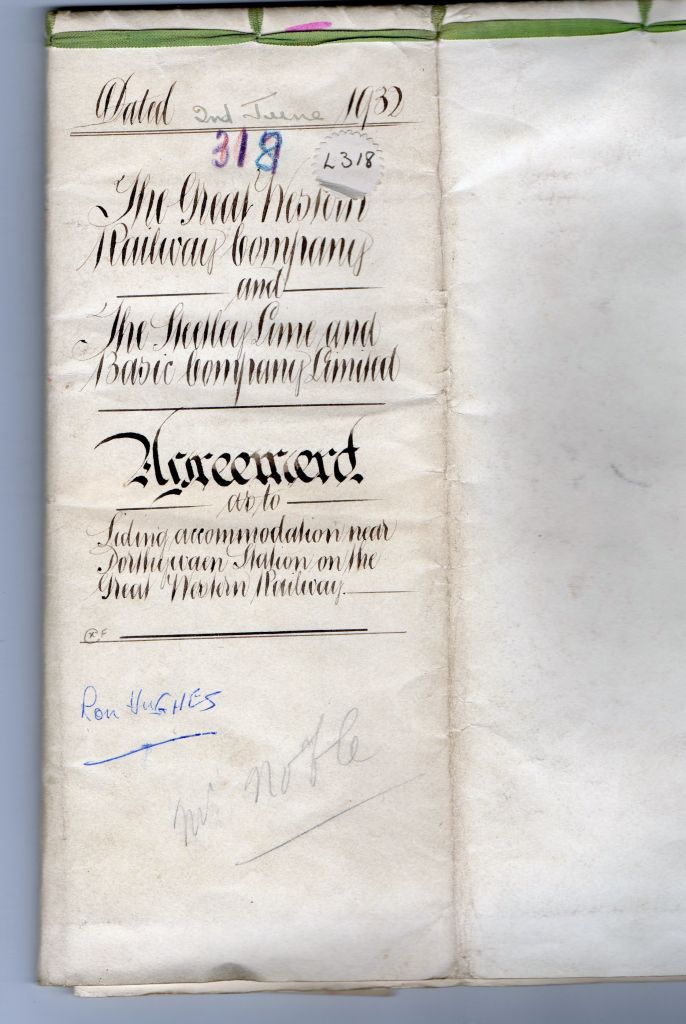 Dated 2nd June 1932
318
L318
The Great Western
Railway Company
and
The Steetley Lime and
Basic Company Limited
Agreement
as to
Siding accommodation near
Porthywaen Station on the
Great Western Railway.
Ron HUGHES
Mr